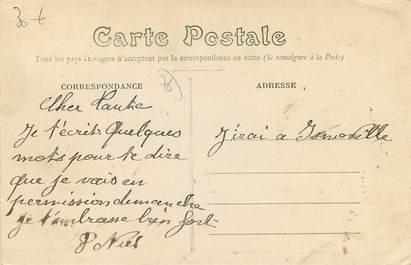 30 €
Carte Postale
Tous les pays étrangers n'acceptent pas la correspondance au recto (Se renseigner à la Poste)
CORRESPONDANCE
Cher
Je t'écris Quelques
mots pour te dire
que je vais en
permission dimanche
je t'embrasse bien fort
ADRESSE
J'irai a